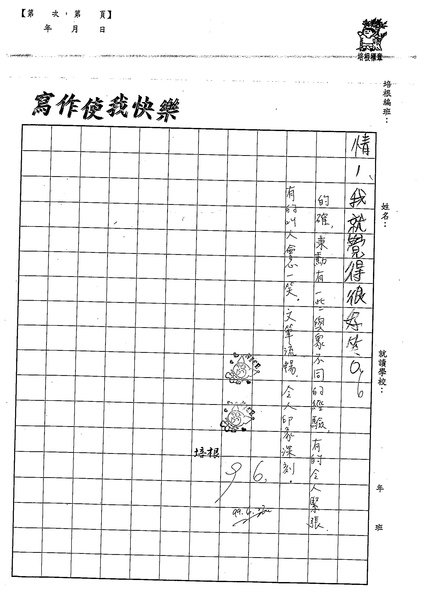 【第　次，第　頁】
年　月　日
培根標章
培根編班：
姓名：
就讀學校：
年　班
寫作使我快樂
情！、我就覺得很好笑。96
的確，東勳有一些與眾不同的經驗，有的令人緊張，
有的叫人會心一笑。文筆流暢，令人印象深刻。
培根
96.